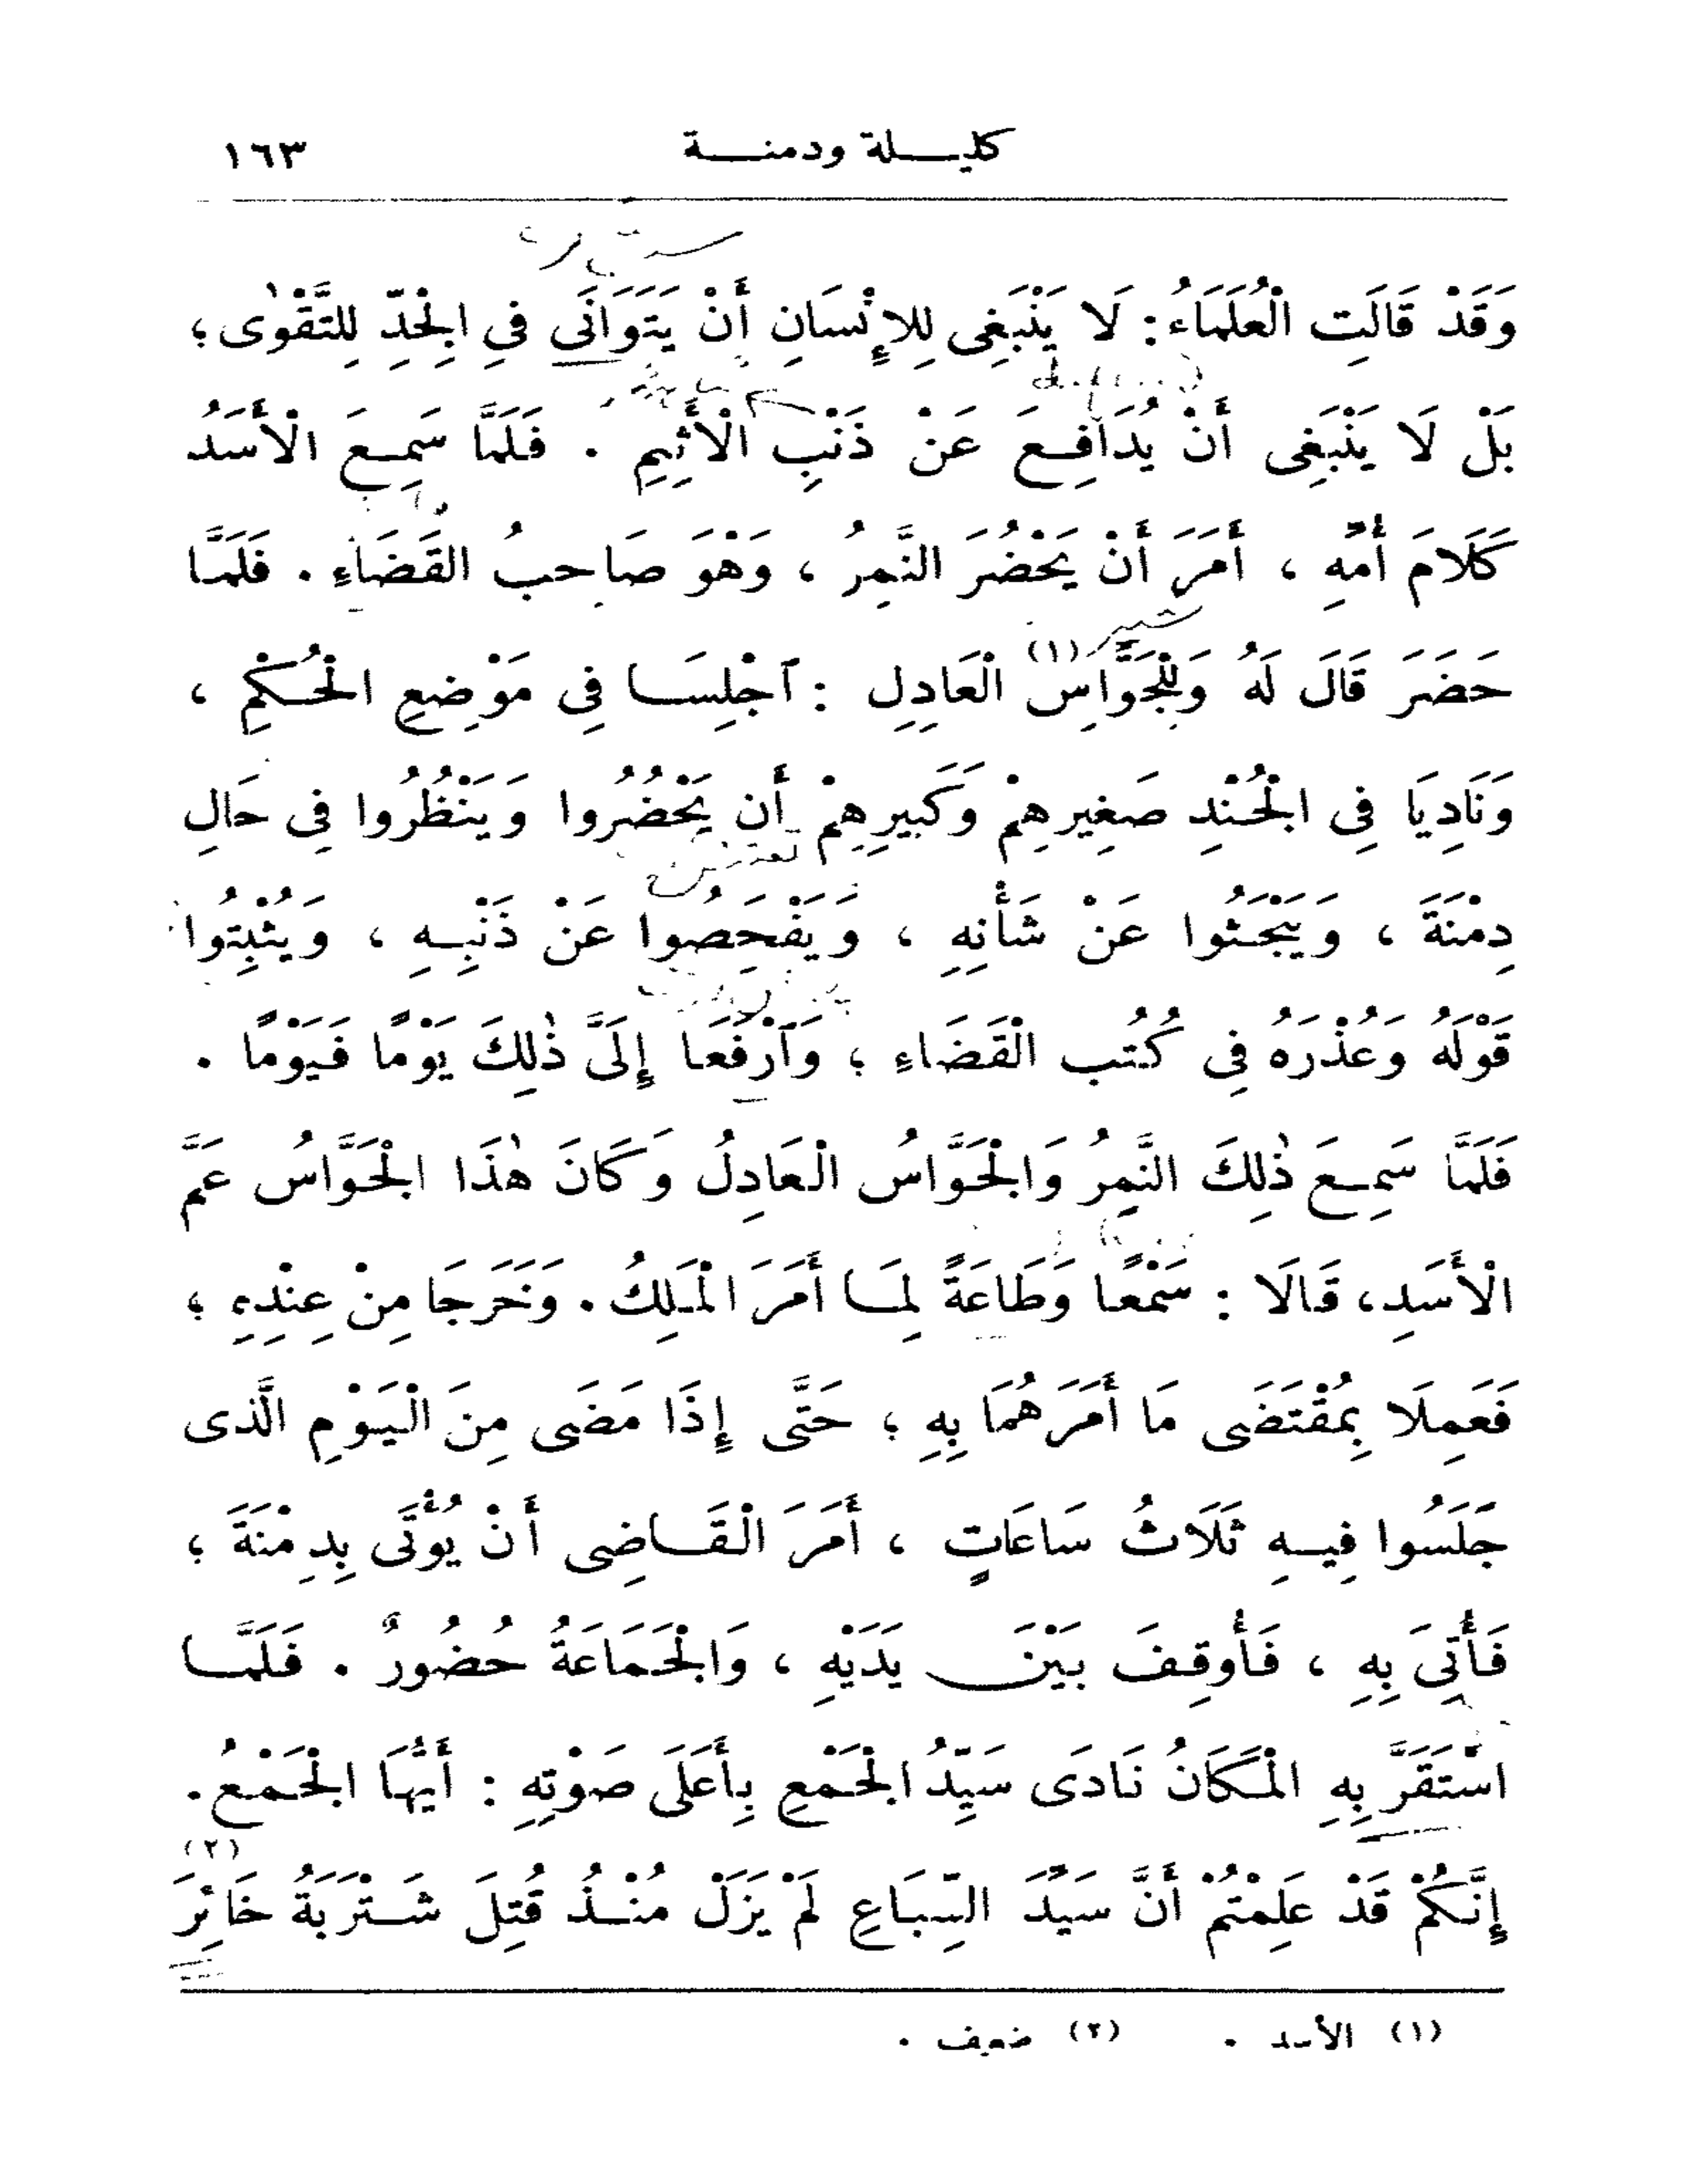 كليلة ودمنة ١٦٣
وَقَدْ قَالَتِ الْعُلَمَاءُ: لَا يَنْبَغِى لِلإِنْسَانِ أَنْ يَتَوَانَى فِي الْجِدِّ لِلتَّقْوٰى؛
بَلْ لَا يَنْبَغِى أَنْ يُدَافِعَ عَنْ ذَنْبِ الْأَثِيمِ . فَلَمَّا سَمِعَ الْأَسَدُ
كَلَامَ أُمِّهِ ، أَمَرَ أَنْ يَحْضُرَ النَّمِرُ ، وَهْوَ صَاحِبُ القَضَاءِ . فَلَمَّا
حَضَرَ قَالَ لَهُ وَلِلْجَوَّاسِ (١) الْعَادِلِ : آجْلِسَا فِى مَوْضِعِ الْحُكْمِ ،
وَنَادِيَا فِى الْجُنْدِ صَغِيرِهِمْ وَكَبِيرِهِمْ أَن يَحْضُرُوا وَيَنْظُرُوا فِى حَالِ
دِمْنَةَ ، وَيَبْحَثُوا عَنْ شَأْنِهِ ، وَيَفْحَصُوا عَنْ ذَنْبِهِ ، وَيُثْبِتُوا
قَوْلَهُ وَعُذْرَهُ فِى كُتُبِ الْقَضَاءِ ؛ وَآرْفَعَا إِلَىَّ ذٰلِكَ يَوْمًا فَيَوْمًا .
فَلَمَّا سَمِعَ ذٰلِكَ النَّمِرُ وَالْجَوَّاسُ الْعَادِلُ وَكَانَ هٰذَا الْجَوَّاسُ عَمَّ
الْأَسَدِ، قَالَا : سَمْعًا وَطَاعَةً لِمَا أَمَرَ الْمَلِكُ . وَخَرَجَا مِنْ عِنْدِهِ ؛
فَعَمِلَا بِمُقْتَضَى مَا أَمَرَهُمَا بِهِ ؛ حَتَّى إِذَا مَضَى مِنَ الْيَوْمِ الَّذى
جَلَسُوا فِيهِ ثَلَاثُ سَاعَاتٍ ، أَمَرَ الْقَاضِى أَنْ يُؤْتَى بِدِمْنَةَ ؛
فَأُتِىَ بِهِ ، فَأُوقِفَ بَيْنَ يَدَيْهِ ، وَالْجَمَاعَةُ حُضُورٌ . فَلَمَّا
اسْتَقَرَّ بِهِ الْمَكَانُ نَادَى سَيِّدُ الْجَمْعِ بِأَعَلَى صَوْتِهِ : أَيُّهَا الْجَمْعُ.
إِنَّكُمْ قَدْ عَلِمْتُمْ أَنَّ سَيِّدَ السِّبَاعِ لَمْ يَزَلْ مُنْذُ قُتِلَ شَتْرَبَةُ خَائِرَ (٢)
(١) الأسد . (٢) ضعيف .